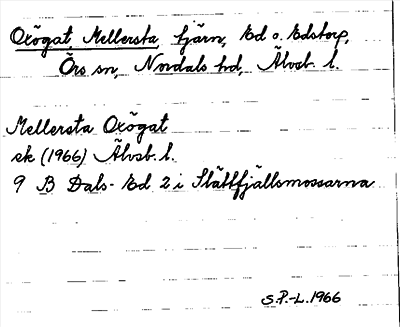 Oxögat, Mellersta, tjärn, Ed o. Edstorp,
Örs sn, Nordals hd, Älvsb. l.
Mellersta Oxögat
sk (1966) Älvsb. l.
9 B Dals-Ed 2 i Slättfjällsmossarna
S.P.-L. 1966